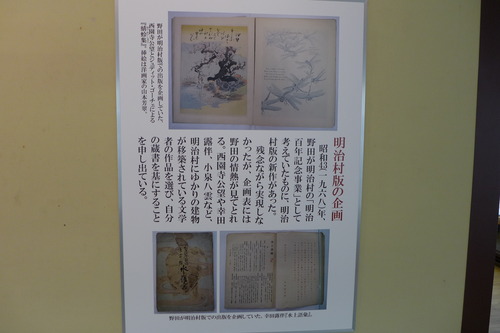 野田が明治村での出版を企画していた、
西園寺公望とジュディット・ゴーチェによる
『蜻蛉集』。挿絵は洋画家の山本芳翠。
明治村版の企画
昭和43（一九六八）年、
野田が明治村の「明治
百年記念事業」として
考えていたものに、「明治
村版の新作」があった。
残念ながら実現しな
かったが、企画表には
野田の情熱が見てとれ
る。西園寺公望や幸田
露伴、小泉八雲など、
明治村にゆかりの建物
が移築されている文学
者の作品を選び、自分
の蔵書を基にすること
を申し出ている。
野田が明治村版での出版を企画していた、幸田露伴『水上語彙』。